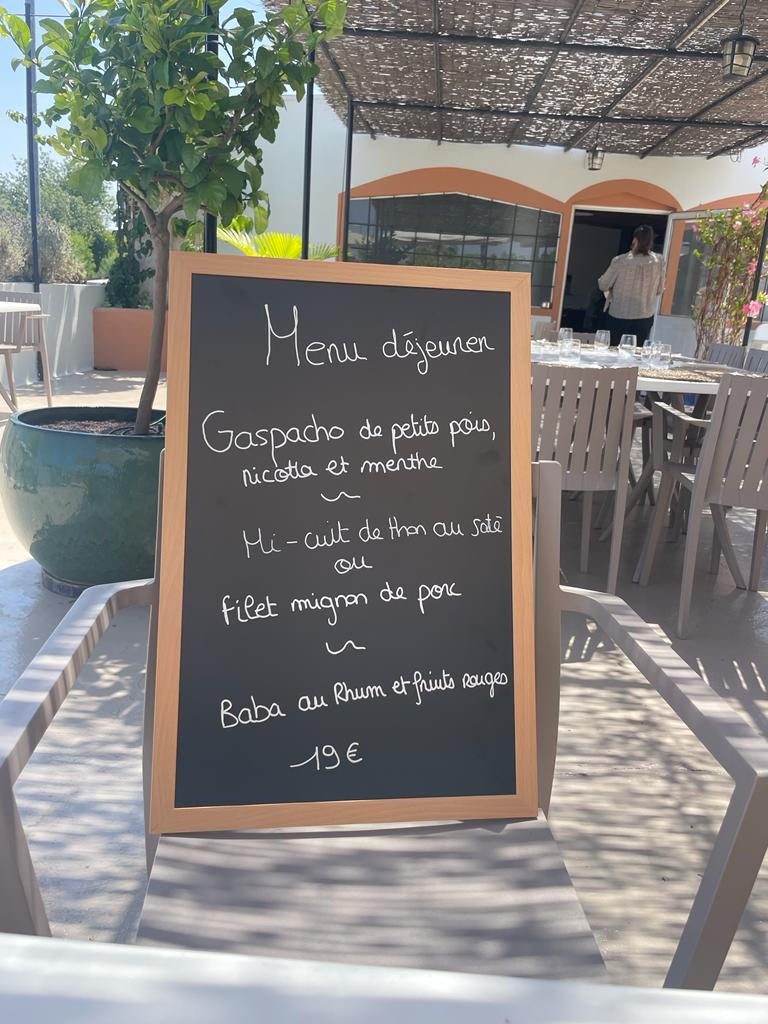 Menu déjeuner
Gaspacho de petits pois,
ricotta et menthe
Mi-cuit de thon au saté
ou
filet mignon de porc
Baba au Rhum et fruits rouges
19€